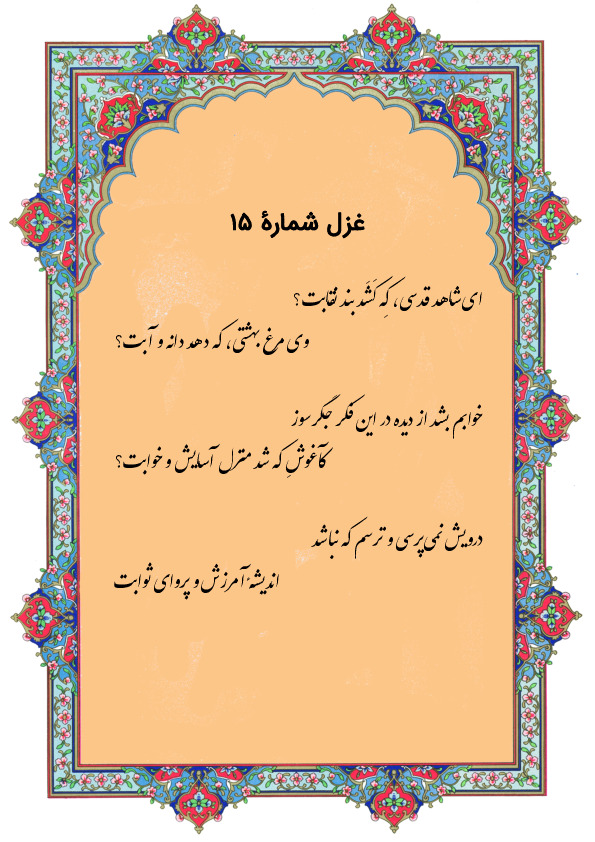 غزل شمارهٔ ۱۵
ای شاهد قدسی، کِه کَشَد بند نقابت؟
وی مرغ بهشتی، که دهد دانه و آبت؟
خوابم بشد از دیده در این فکر جگر سوز
کآغوشِ که شد منزل آسایش و خوابت؟
درویش نمی‌پرسی و ترسم که نباشد
اندیشهٔ آمرزش و پروای ثوابت